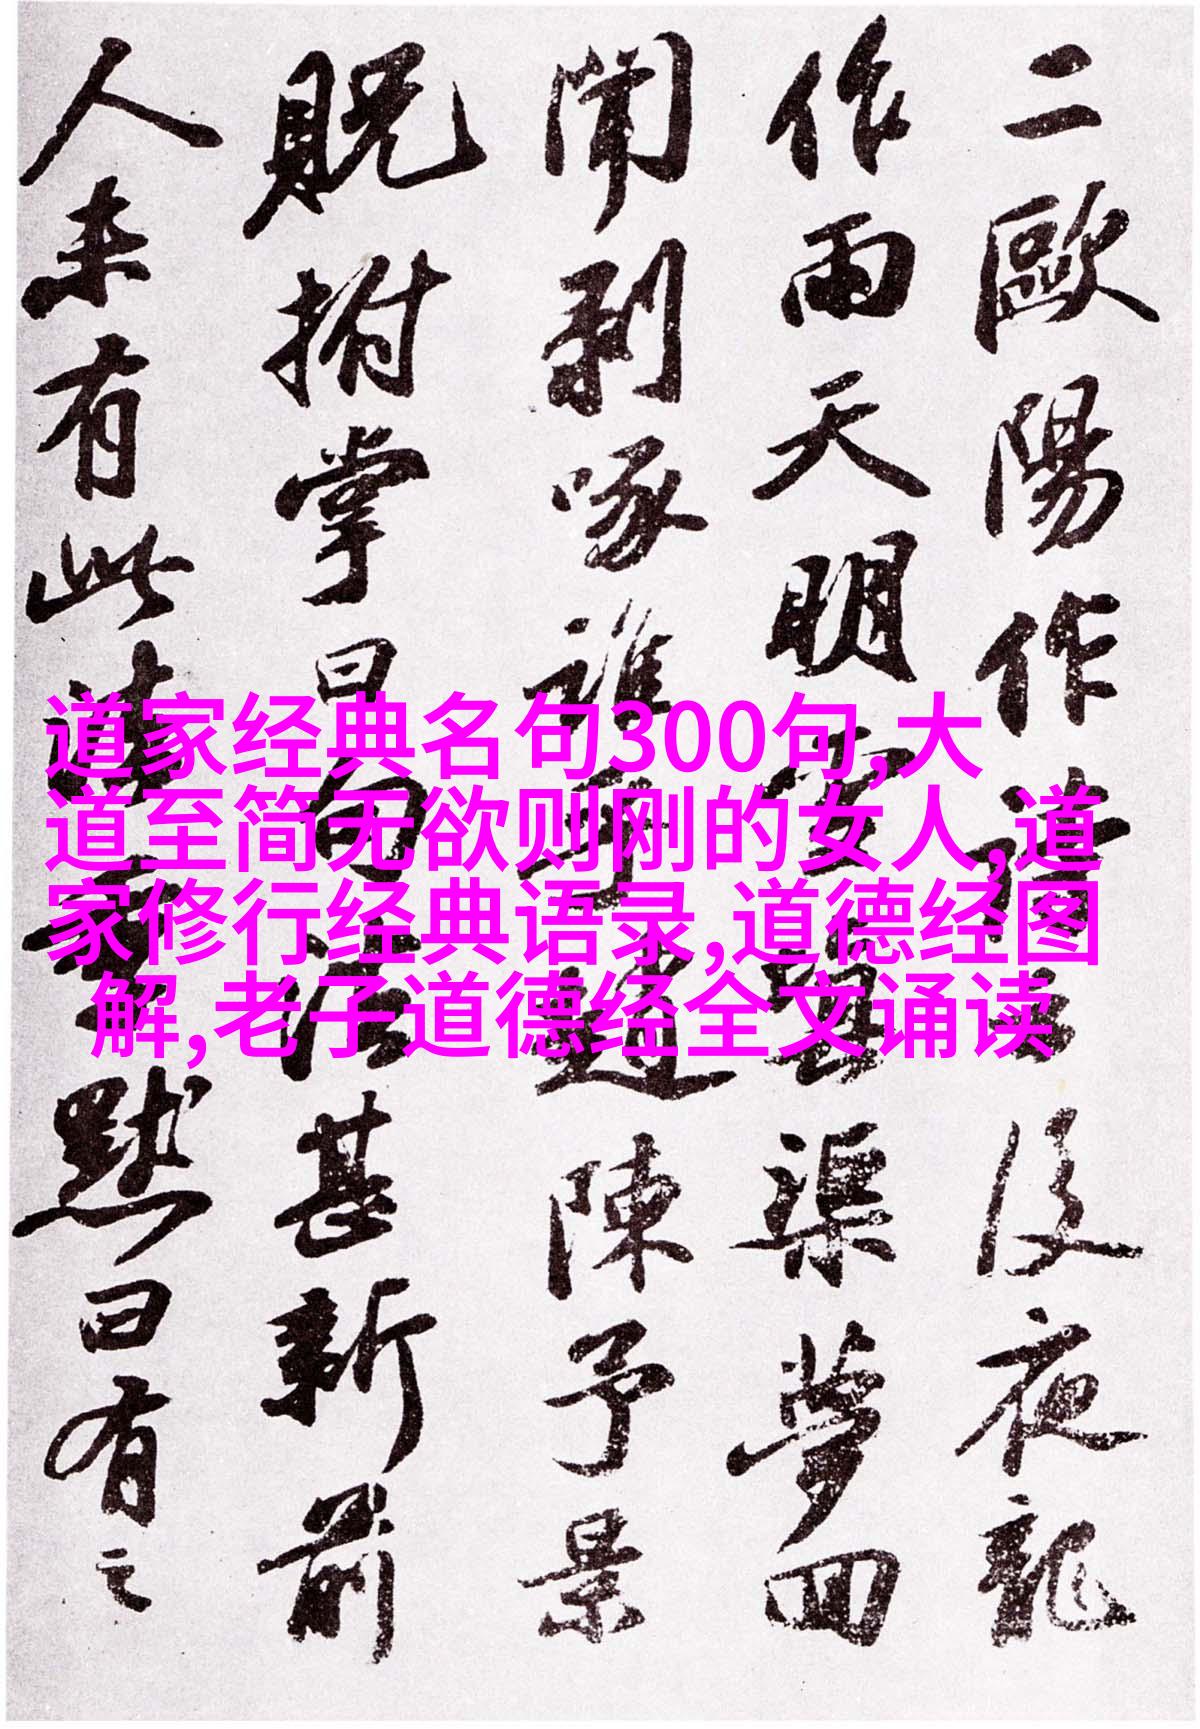 二歐陽作詩云後夜龍
作雨天明渠夢回
聞剥啄誰乎趙陳予景
貺拊掌曰句法甚新前
人未有此默曰有之
道家经典名句300句,大
道至简无欲则刚的女人,道
家修行经典语录,道德经图
解,老子道德经全文诵读